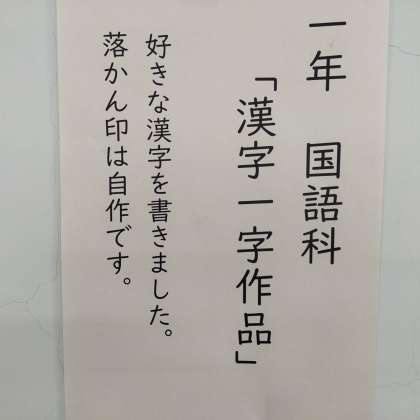 一年　国語科
「漢字一字作品」
好きな漢字を書きました。
落かん印は自作です。